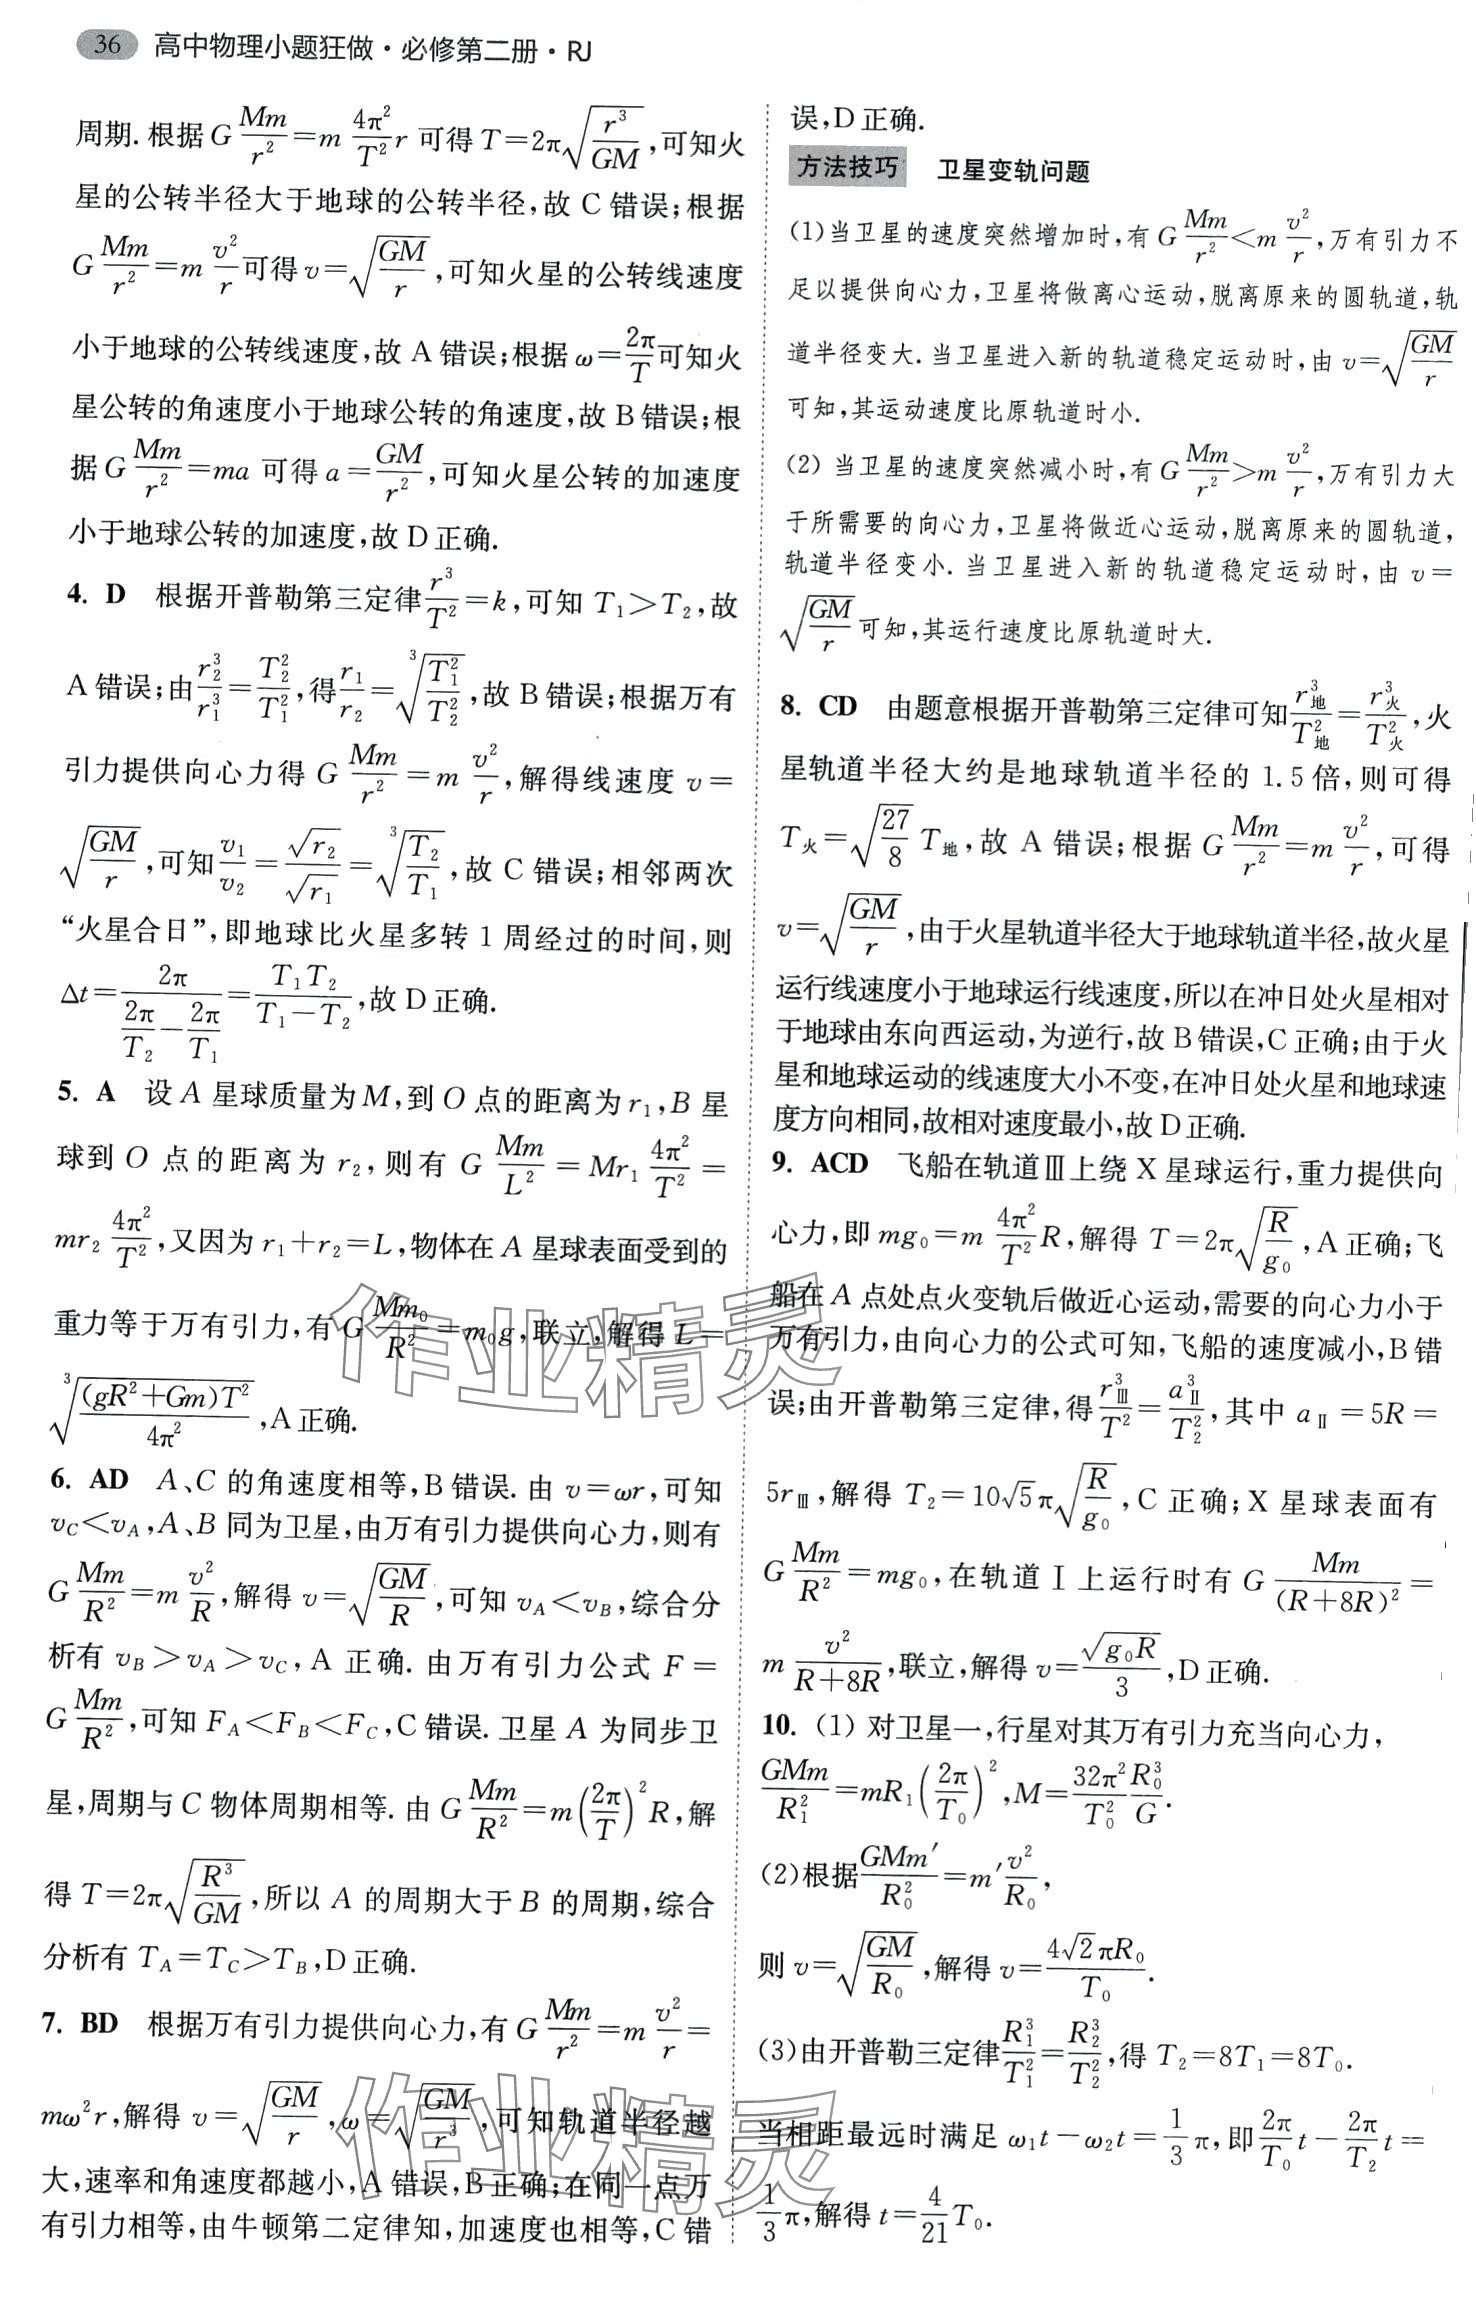 36 高中物理小题狂做·必修第二册·RJ
周期.根据G Mm/r²=m 4π²/T² r 可得 T=2π√(r³/GM),可知火
星的公转半径大于地球的公转半径,故 C 错误;根据
G Mm/r²=m v²/r 可得 v=√(GM/r),可知火星的公转线速度
小于地球的公转线速度,故 A 错误;根据 ω=2π/T 可知火
星公转的角速度小于地球公转的角速度,故 B 错误;根
据 G Mm/r²=ma 可得 a=GM/r²,可知火星公转的加速度
小于地球公转的加速度,故 D 正确.
4. D 根据开普勒第三定律 r³/T²=k,可知 T₁>T₂,故
A 错误;由 r₂³/r₁³=T₂²/T₁²,得 r₁/r₂=³√(T₁²/T₂²),故 B 错误;根据万有
引力提供向心力得 G Mm/r²=m v²/r,解得线速度 v=
√(GM/r),可知 v₁/v₂=√r₂/√r₁=³√(T₂/T₁),故 C 错误;相邻两次
“火星合日”,即地球比火星多转 1 周经过的时间,则
Δt=2π/(2π/T₂−2π/T₁)=T₁T₂/(T₁−T₂),故 D 正确.
5. A 设 A 星球质量为 M,到 O 点的距离为 r₁,B 星
球到 O 点的距离为 r₂,则有 G Mm/L²=Mr₁ 4π²/T²=
mr₂ 4π²/T²,又因为 r₁+r₂=L,物体在 A 星球表面受到的
重力等于万有引力,有 G Mm₀/R²=m₀g,联立,解得 L=
³√((gR²+Gm)T²/4π²),A 正确.
6. AD A、C 的角速度相等,B 错误.由 v=ωr,可知
v_C<v_A,A、B 同为卫星,由万有引力提供向心力,则有
G Mm/R²=m v²/R,解得 v=√(GM/R),可知 v_A<v_B,综合分
析有 v_B>v_A>v_C,A 正确.由万有引力公式 F=
G Mm/R²,可知 F_A<F_B<F_C,C 错误.卫星 A 为同步卫
星,周期与 C 物体周期相等.由 G Mm/R²=m(2π/T)²R,解
得 T=2π√(R³/GM),所以 A 的周期大于 B 的周期,综合
分析有 T_A=T_C>T_B,D 正确.
7. BD 根据万有引力提供向心力,有 G Mm/r²=m v²/r=
mω²r,解得 v=√(GM/r),ω=√(GM/r³),可知轨道半径越
大,速率和角速度都越小,A 错误,B 正确;在同一点万
有引力相等,由牛顿第二定律知,加速度也相等,C 错
误,D 正确.
方法技巧 卫星变轨问题
(1)当卫星的速度突然增加时,有 G Mm/r²<m v²/r,万有引力不
足以提供向心力,卫星将做离心运动,脱离原来的圆轨道,轨
道半径变大.当卫星进入新的轨道稳定运动时,由 v=√(GM/r)
可知,其运动速度比原轨道时小.
(2) 当卫星的速度突然减小时,有 G Mm/r²>m v²/r,万有引力大
于所需要的向心力,卫星将做近心运动,脱离原来的圆轨道,
轨道半径变小.当卫星进入新的轨道稳定运动时,由 v=
√(GM/r) 可知,其运行速度比原轨道时大.
8. CD 由题意根据开普勒第三定律可知 r地³/T地²=r火³/T火²,火
星轨道半径大约是地球轨道半径的 1.5 倍,则可得
T火=√(27/8) T地,故 A 错误;根据 G Mm/r²=m v²/r,可得
v=√(GM/r),由于火星轨道半径大于地球轨道半径,故火星
运行线速度小于地球运行线速度,所以在冲日处火星相对
于地球由东向西运动,为逆行,故 B 错误,C 正确;由于火
星和地球运动的线速度大小不变,在冲日处火星和地球速
度方向相同,故相对速度最小,故 D 正确.
9. ACD 飞船在轨道Ⅲ上绕 X 星球运行,重力提供向
心力,即 mg₀=m 4π²/T² R,解得 T=2π√(R/g₀),A 正确;飞
船在 A 点处点火变轨后做近心运动,需要的向心力小于
万有引力,由向心力的公式可知,飞船的速度减小,B 错
误;由开普勒第三定律,得 rⅢ³/T²=aⅡ³/T₂²,其中 aⅡ=5R=
5rⅢ,解得 T₂=10√5π√(R/g₀),C 正确;X 星球表面有
G Mm/R²=mg₀,在轨道Ⅰ上运行时有 G Mm/(R+8R)²=
m v²/(R+8R),联立,解得 v=√(g₀R)/3,D 正确.
10. (1) 对卫星一,行星对其万有引力充当向心力,
GMm/R₁²=mR₁(2π/T₀)²,M=32π²/T₀² R₀³/G.
(2)根据 GMm′/R₀²=m′v²/R₀,
则 v=√(GM/R₀),解得 v=4√2πR₀/T₀.
(3)由开普勒三定律 R₁³/T₁²=R₂³/T₂²,得 T₂=8T₁=8T₀.
当相距最远时满足 ω₁t−ω₂t=1/3 π,即 2π/T₀ t−2π/T₂ t=
1/3 π,解得 t=4/21 T₀.
作业精灵
作业精灵